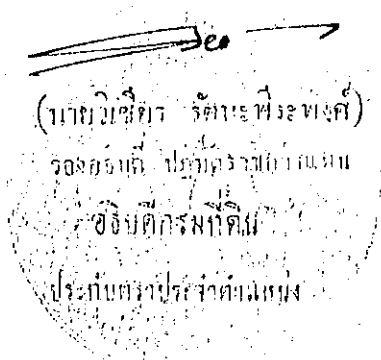 (นายวิเชียร รัตนะพีระพงศ์)
รองอธิบดี ปฏิบัติราชการแทน
อธิบดีกรมที่ดิน
ประทับตราประจำตำแหน่ง